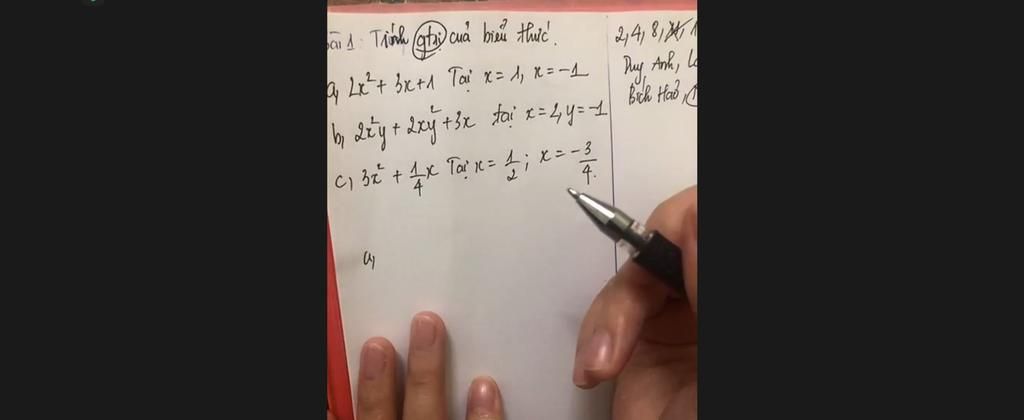 bài 1: Tính gtrị của biểu thức.
a, 2x² + 3x + 1 Tại x = 1, x = -1
b, 2x²y + 2xy² + 3x tại x = 2, y = -1
c, 3x² + 1/4 x Tại x = 1/2 ; x = -3/4.
a,
2, 4, 8,
Duy Anh,
Bích Hảo,